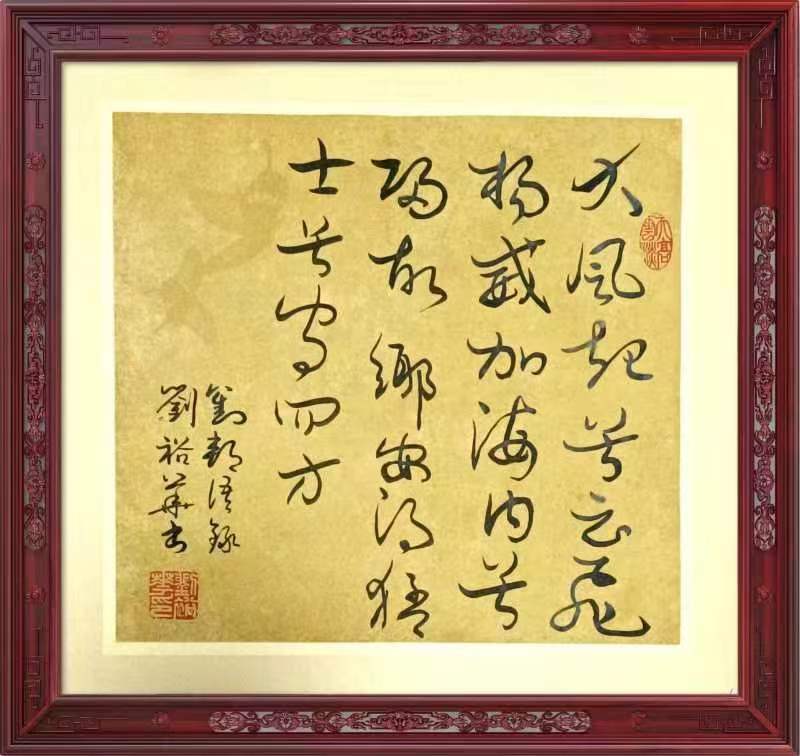 大風起兮云飛
揚威加海内兮
歸故鄉安得猛
士兮守四方
劉邦語錄
劉裕華書